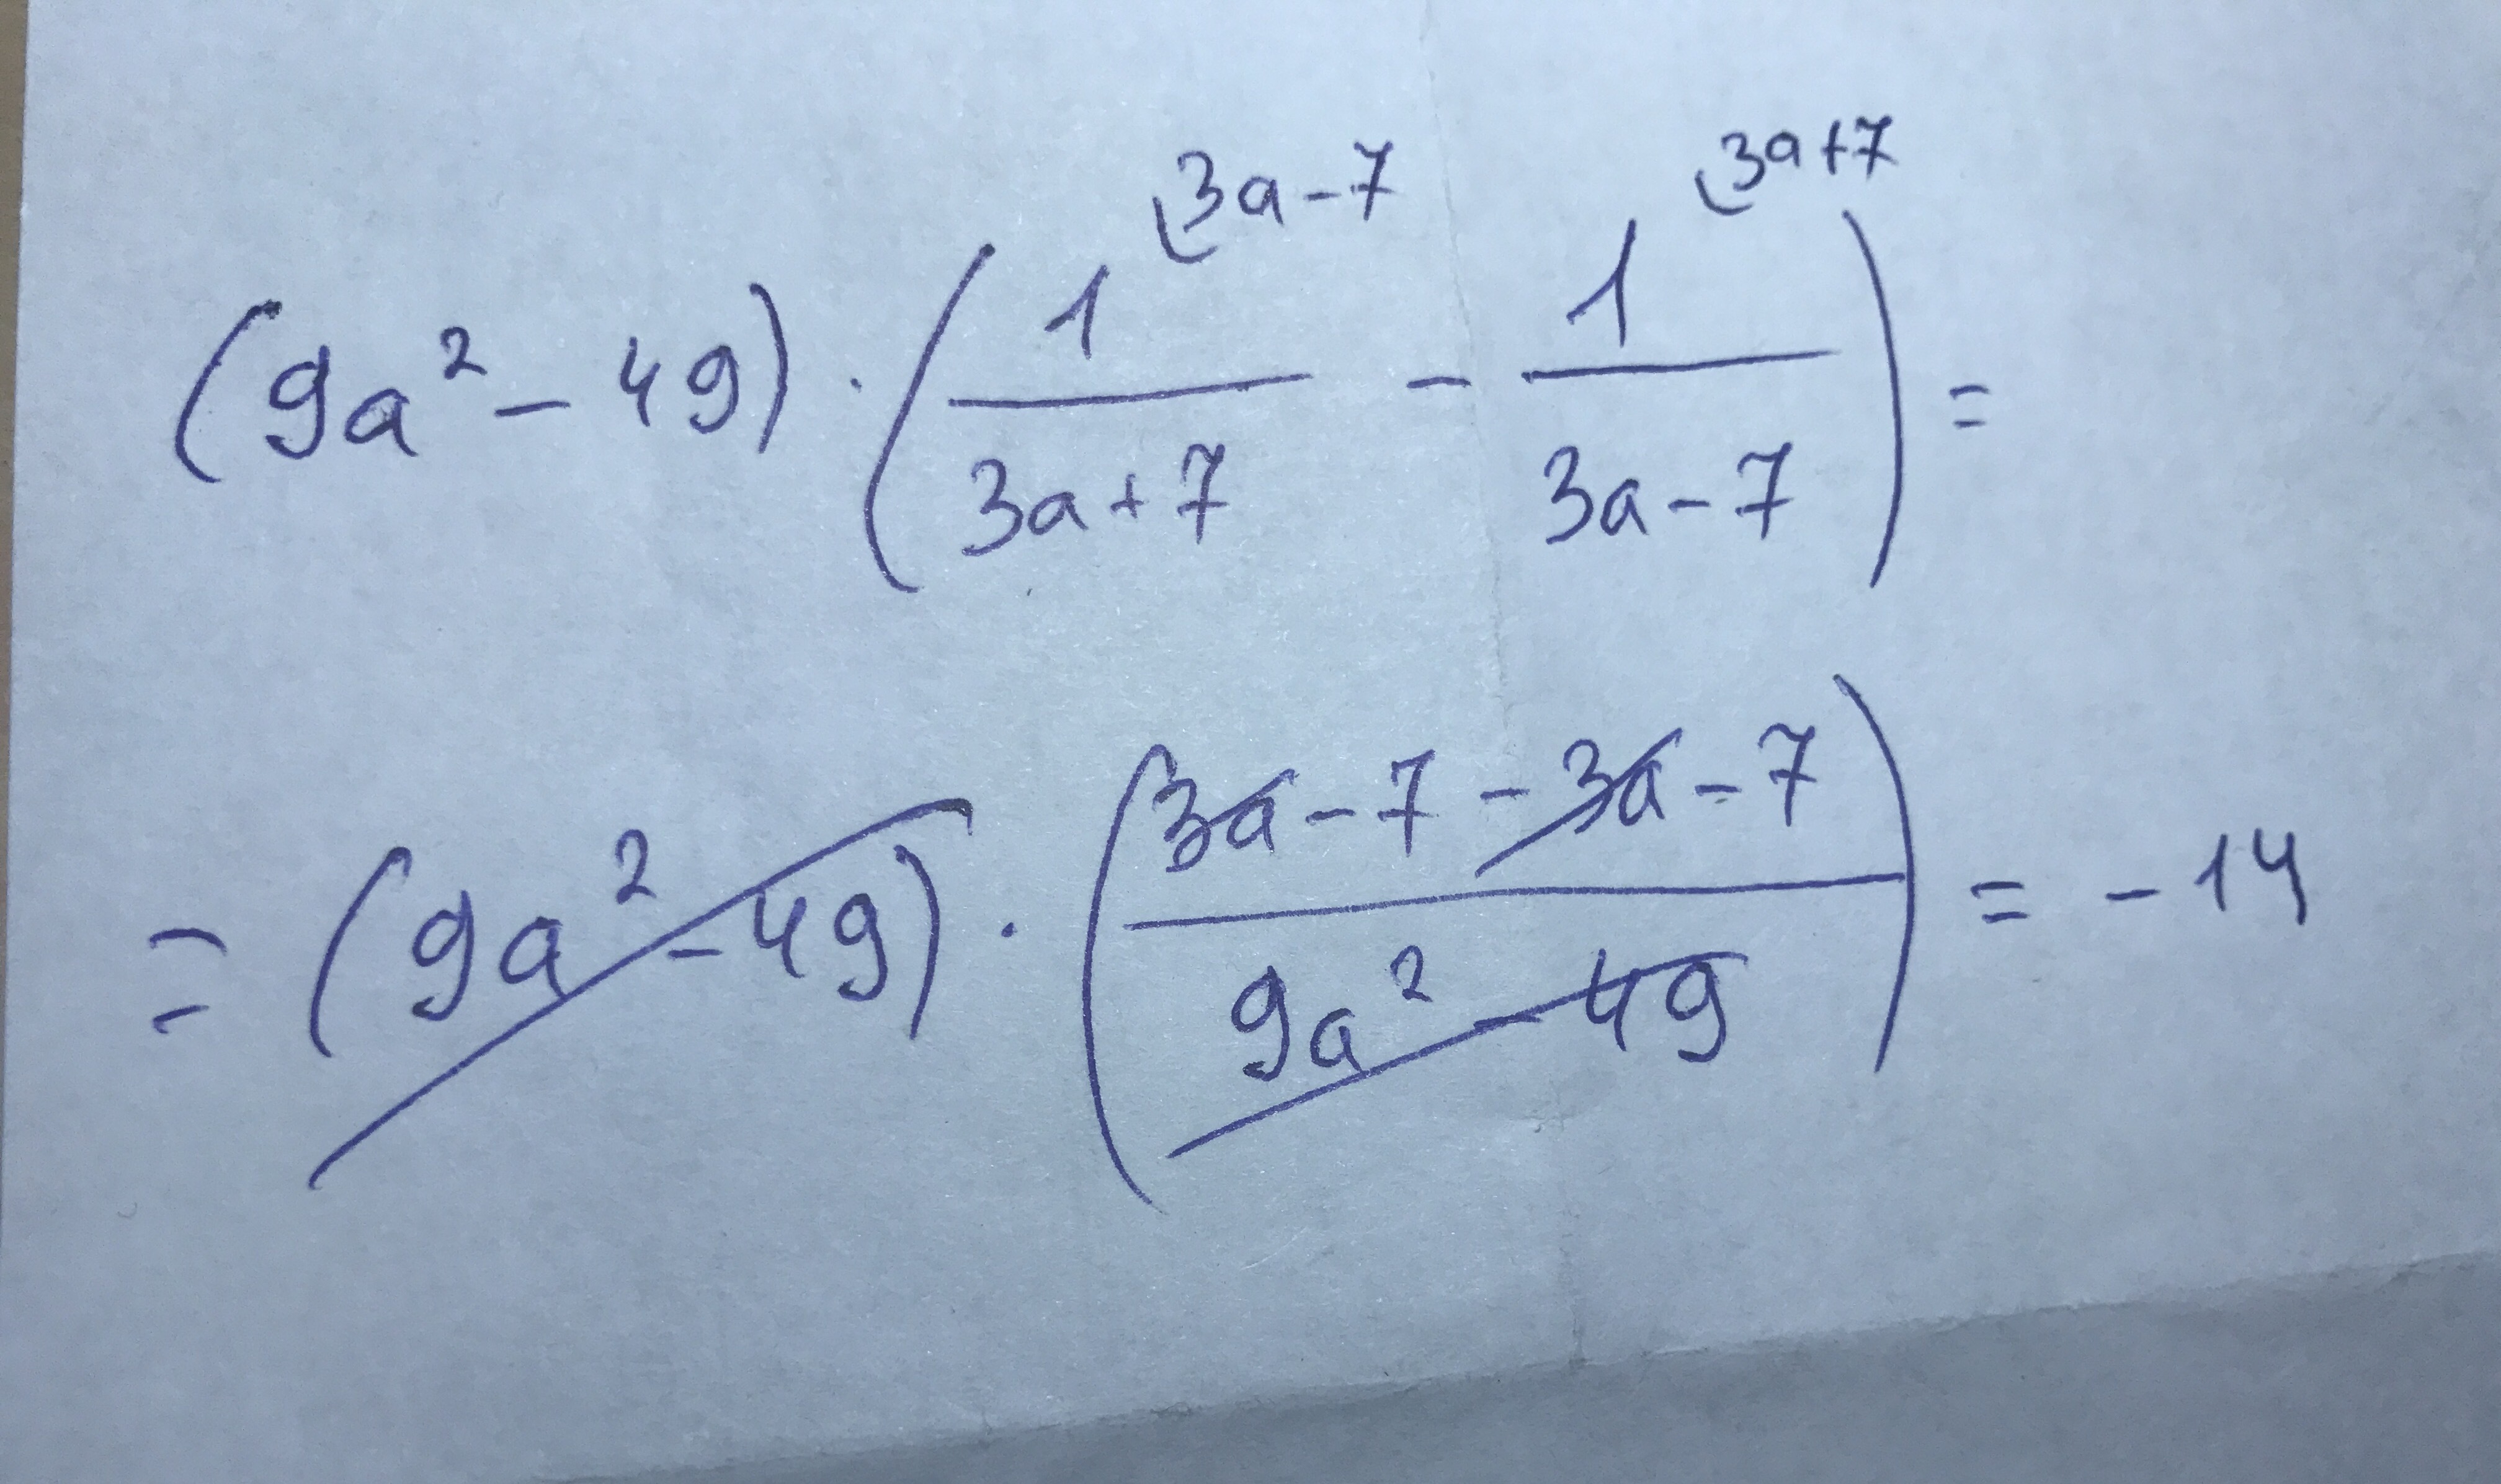 (9a² - 49) · (1/(3a+7) ⁽3a-7 - 1/(3a-7) ⁽3a+7) =
= (9a² - 49) · ((3a - 7 - 3a - 7)/(9a² - 49)) = -14